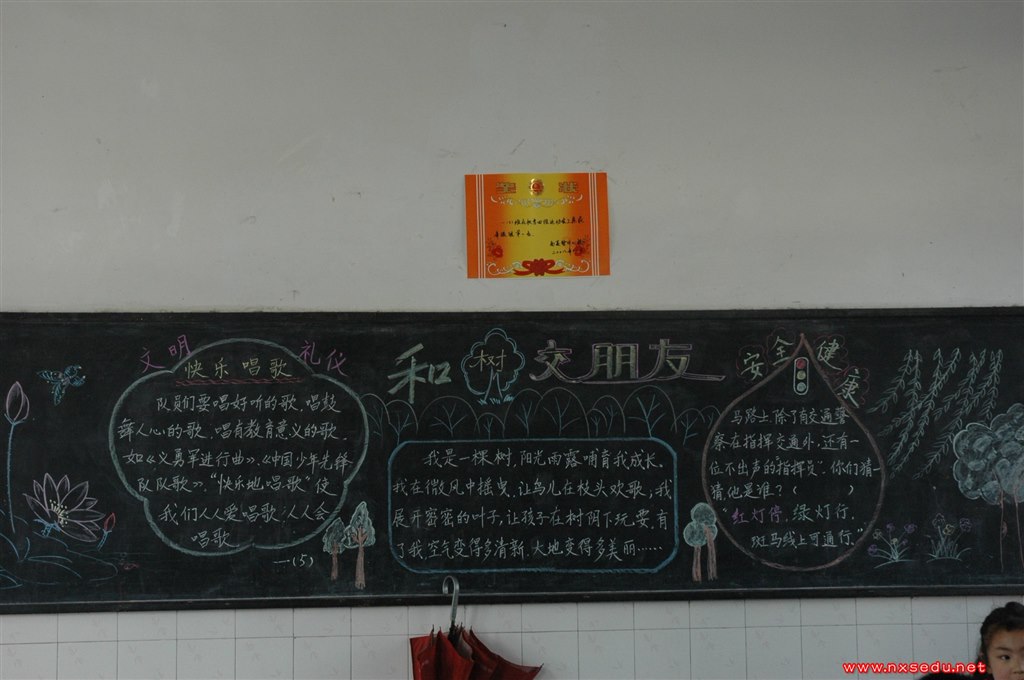 奖状
文明
礼仪
快乐唱歌
队员们要唱好听的歌，唱鼓
舞人心的歌，唱有教育意义的歌，
如《义勇军进行曲》、《中国少年先锋
队队歌》。“快乐地唱歌”使
我们人人爱唱歌，人人会
唱歌
一(5)
和树交朋友
我是一棵树，阳光雨露哺育我成长。
我在微风中摇曳，让鸟儿在枝头欢歌；我
展开密密的叶子，让孩子在树阴下玩耍，有
了我空气变得多清新，大地变得多美丽……
安全健康
马路上，除了有交通警
察在指挥交通外，还有一
位不出声的“指挥员”，你们猜
猜，他是谁？（ ）
“红灯停，绿灯行，
斑马线上可通行。”
www.nxsedu.net